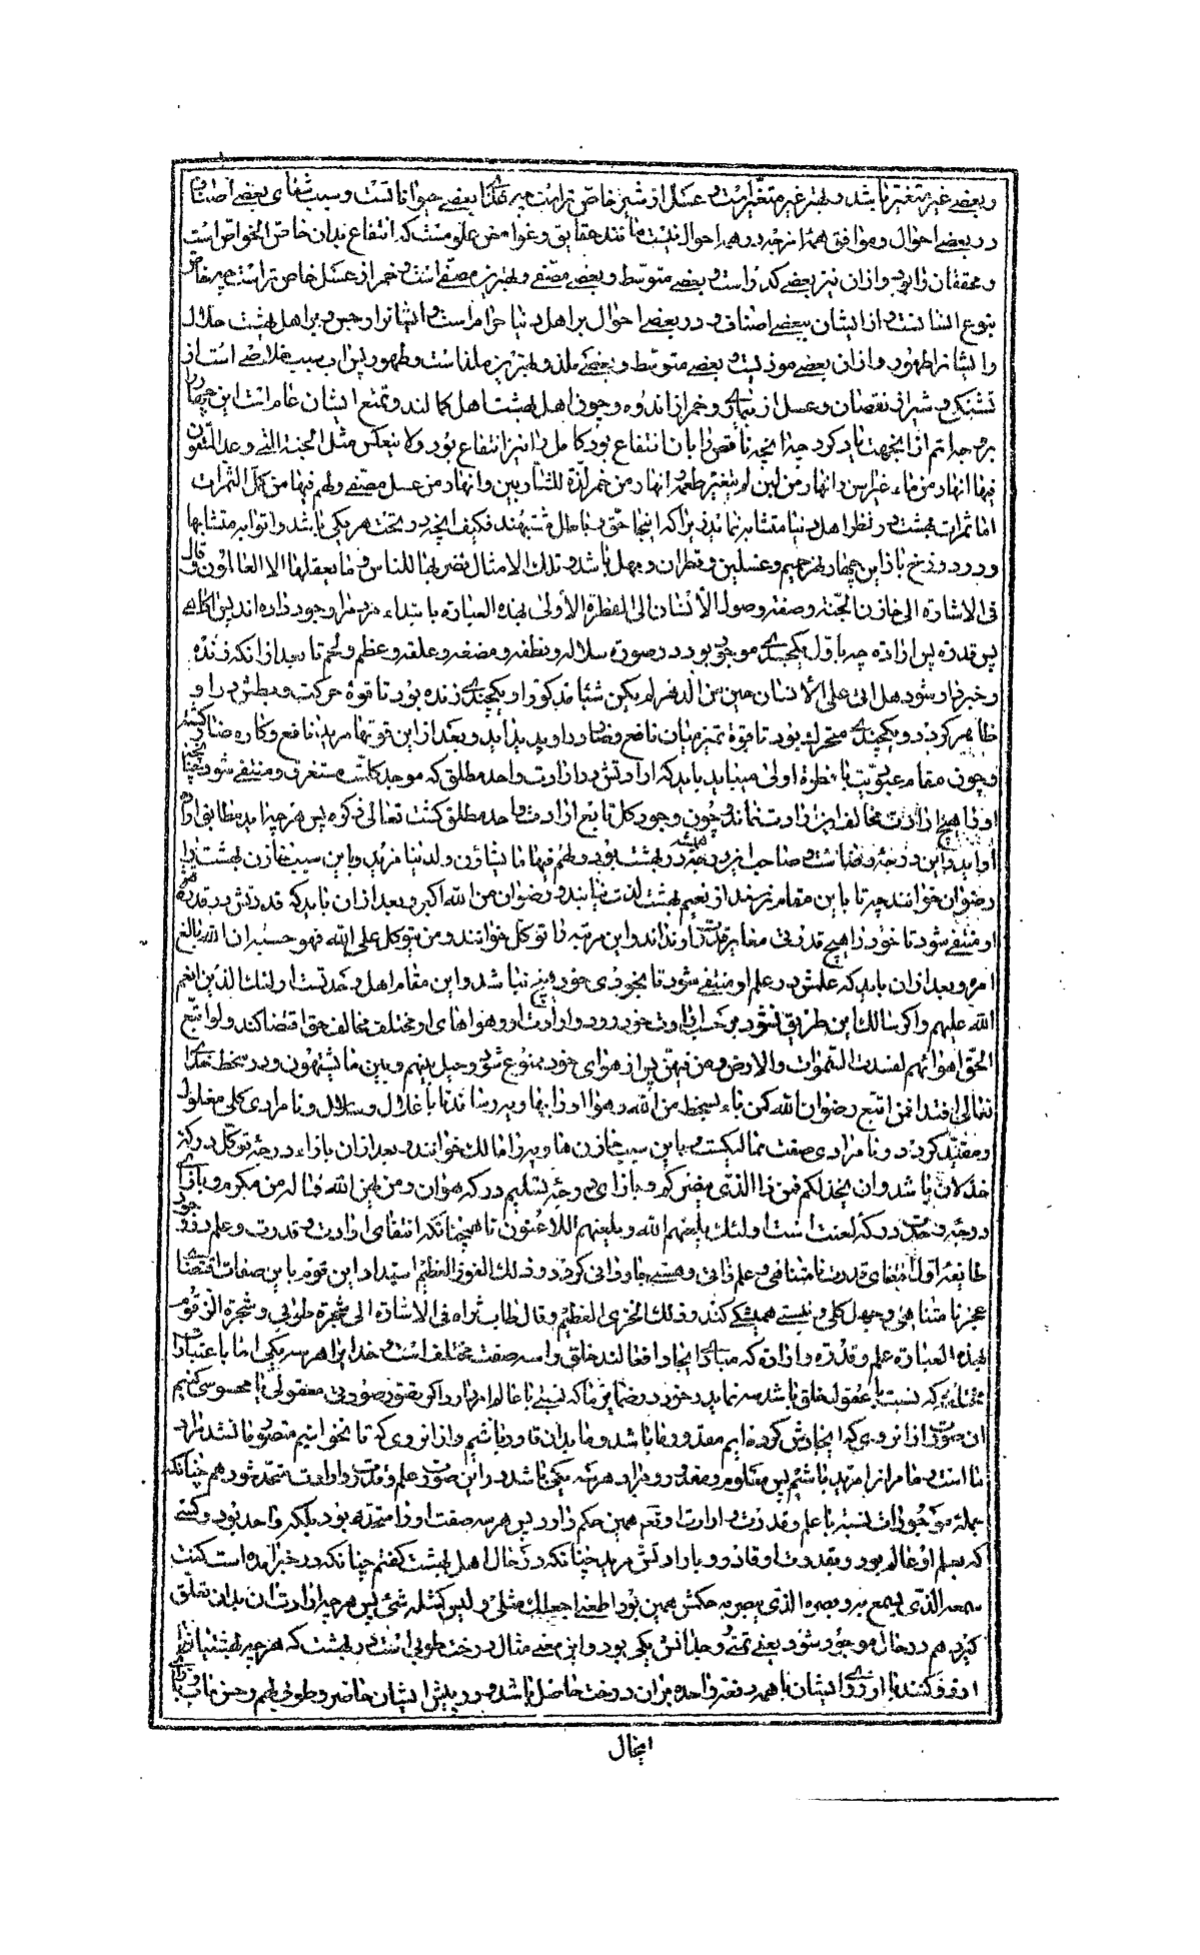 و بعضی غیر متغیر باشد و بهتر غیر متغیر است و عسل از شیر خاص تر است چه غذای بعضی حیوانات است و سبب شفای بعضی اصناف
در بعضی احوال و موافق همه امزجه در همه احوال نیست مانند حقایق و غوامض علوم است که انتفاع بدان خاص الخواص است
و محققان را بود و ازان نیز بعضی کدر است و بعضی متوسط و بعضی مصفی و بهترین مصفی است و خمر از عسل خاص تر است چه خاص
بنوع انسانست و از ایشان ببعضی اصناف و در بعضی احوال بر اهل دنیا حرام است و ایشانرا رجس و بر اهل بهشت حلال
و ایشانرا طهور و ازان بعضی موذیست و بعضی متوسط و بعضی ملذ و بهترین ملذ است و طهور پس اب سبب خلاص است از
تشنگی و شیر از نقصان و عسل از بیماری و خمر از اندوه و چون اهل بهشت اهل کمالند و تمتع ایشان عام است این چهار
بر وجه اتم از انجهت یاد کرد چه انچه ناقص را بان انتفاع بود کامل را نیز انتفاع بود و لا ینعکس مثل الجنة التی وعد المتقون
فیها انهار من ماء غیر اسن و انهار من لبن لم یتغیر طعمه و انهار من خمر لذة للشاربین و انهار من عسل مصفی و لهم فیها من کل الثمرات
اما ثمرات بهشت در نظر اهل دنیا متشابه نماید زیرا که اینجا حق و باطل مشتبهند فکیف انچه در تحت هر یکی باشد و اتوا به متشابها
و در دوزخ بازاء این چهار نهر حمیم و غسلین و قطران و مهل باشد و تلک الامثال نضربها للناس و ما یعقلها الا العالمون و قال
فی الاشارة الی خازن الجنة و صفته وصول الانسان الی الفطرة الاولی بهذه العبارة بابتداء وجود داده اند پس اکاهی
پس قدرة پس ارادة چه باول یکچندی موجود بود در صورة سلاله و نطفه و مضغه و علقه و عظم و لحم تا بعد ازانکه زنده
و خبردار شود هل اتی علی الانسان حین من الدهر لم یکن شیئا مذکورا و یکچندی زنده بود تا قوة حرکت و بطش درو
ظاهر کردد و یکچندی متحرک بود تا قوة تمیز میان نافع و ضار درو پدید اید و بعد از این قوتها مرید نافع و کاره ضار
و چون مقام عبودیت با فطرة اولی میباید باید که ارادتش در ارادت واحد مطلق که موجد کلست مستغرق و منتفی شود چنانچه
او را هیچ ارادت مخالف این ارادت نماند و چون وجود کل تابع ارادت واحد مطلق کشت تعالی ذکره پس هر چه اید مطابق ارادة
او اید و این درجه رضاست و صاحب این درجه همیشه در بهشت بود و لهم فیها ما یشاؤن و لدینا مزید و باین سبب خازن بهشت را
رضوان خوانند چه تا باین مقام نرسند از نعیم بهشت لذت نیابند و رضوان من الله اکبر و بعد ازان باید که قدرتش در قدرة
او منتفی شود تا خود را هیچ قدرتی مغایر قدرت او نداند و این مرتبه را توکل خوانند و من یتوکل علی الله فهو حسبه ان الله بالغ
امره و بعد ازان باید که علمش در علم او منتفی شود تا بخودی خود هیچ نباشد و این مقام اهل وحدتست اولئک الذین انعم
الله علیهم و اکر سالک این طریق نشود بر حسب ارادت خود رود و ارادت او و هواهای او مختلف مخالف حق اقتضا کند و لو اتبع
الحق اهوائهم لفسدت السموات و الارض و من فیهن پس از هوای خود ممنوع شود و حیل بینهم و بین ما یشتهون و در سخط خدای
تعالی افتد افمن اتبع رضوان الله کمن باء بسخط من الله و هوا او را بهاویه رساند تا با غلال و سلاسل و نامرادی کلی مغلول
و مقید کردد و نامرادی صفت ممالیکست و باین سبب خازن هاویه را مالک خوانند و بعد ازان بازاء درجه توکل درکه
خذلان باشد و ان یخذلکم فمن ذا الذی ینصرکم و بازای درجه تسلیم درکه هوان و من یهن الله فما له من مکرم و بازای
درجه وحدت درکه لعنت است اولئک یلعنهم الله و یلعنهم اللاعنون تا همچنانکه انتفای ارادت و قدرت و علم و وجود
طایفه اول اقتضای قدرت نامتناهی و علم ذاتی و هستی جاودانی کرد و ذلک الفوز العظیم استبداد این قوم باین صفات اقتضای
عجز نامتناهی و جهل کلی و نیستی همیشکی کند و ذلک الخزی العظیم و قال طاب ثراه فی الاشارة الی شجرة طوبی و شجرة الزقوم
بهذه العبارة علم و قدرة و ارادة که مبادی ایجاد افعالند خلق را سه صفت مختلف است و خدایرا هر سه یکی اما باعتبار
که نسبت با عقول خلق باشد سه نماید و خود در ضمایر ما که نسبتی با عالم امر دارد اکر بتصور صورتی معقول یا محسوس کنیم
ان صورت ازانروی که ایجادش کرده ایم مقدور ما باشد و ما بدان قادر باشیم و ازانروی که تا نخواستیم متصور ما نشد مراد
ما است و ما مر انرا مرید باشیم پس معلوم و مقدور و مراد هر سه یکی باشد و این صورت علم و قدرت و ارادت متحد شود هم چنانکه
جمله موجودات نسبة با علم و قدرت و ارادت او تعالی همین حکم دارد پس هر سه صفت او را متحد بود بلکه واحد بود و کسی
که بعلم او عالم بود و بقدرت او قادر و بارادتش مرید چنانکه در حال اهل بهشت کفتم چنانکه در خبر امده است کنت
سمعه الذی یسمع به و بصره الذی یبصر به حکمش همین بود اطعنی اجعلک مثلی و لیس کمثله شیء پس هر چه ارادت ان بدان تعلق
کیرد هم در حال موجود شود یعنی تمنی و وجدانش یکی بود و این معنی مثال درخت طوبی است در بهشت که هر چه بهشتیان
ارزو کنند با ارزوی ایشان با همه دفعة واحده بران درخت حاصل باشد و در پیش ایشان حاضر و طوبی لهم و حسن ماب و بازای
اینحال